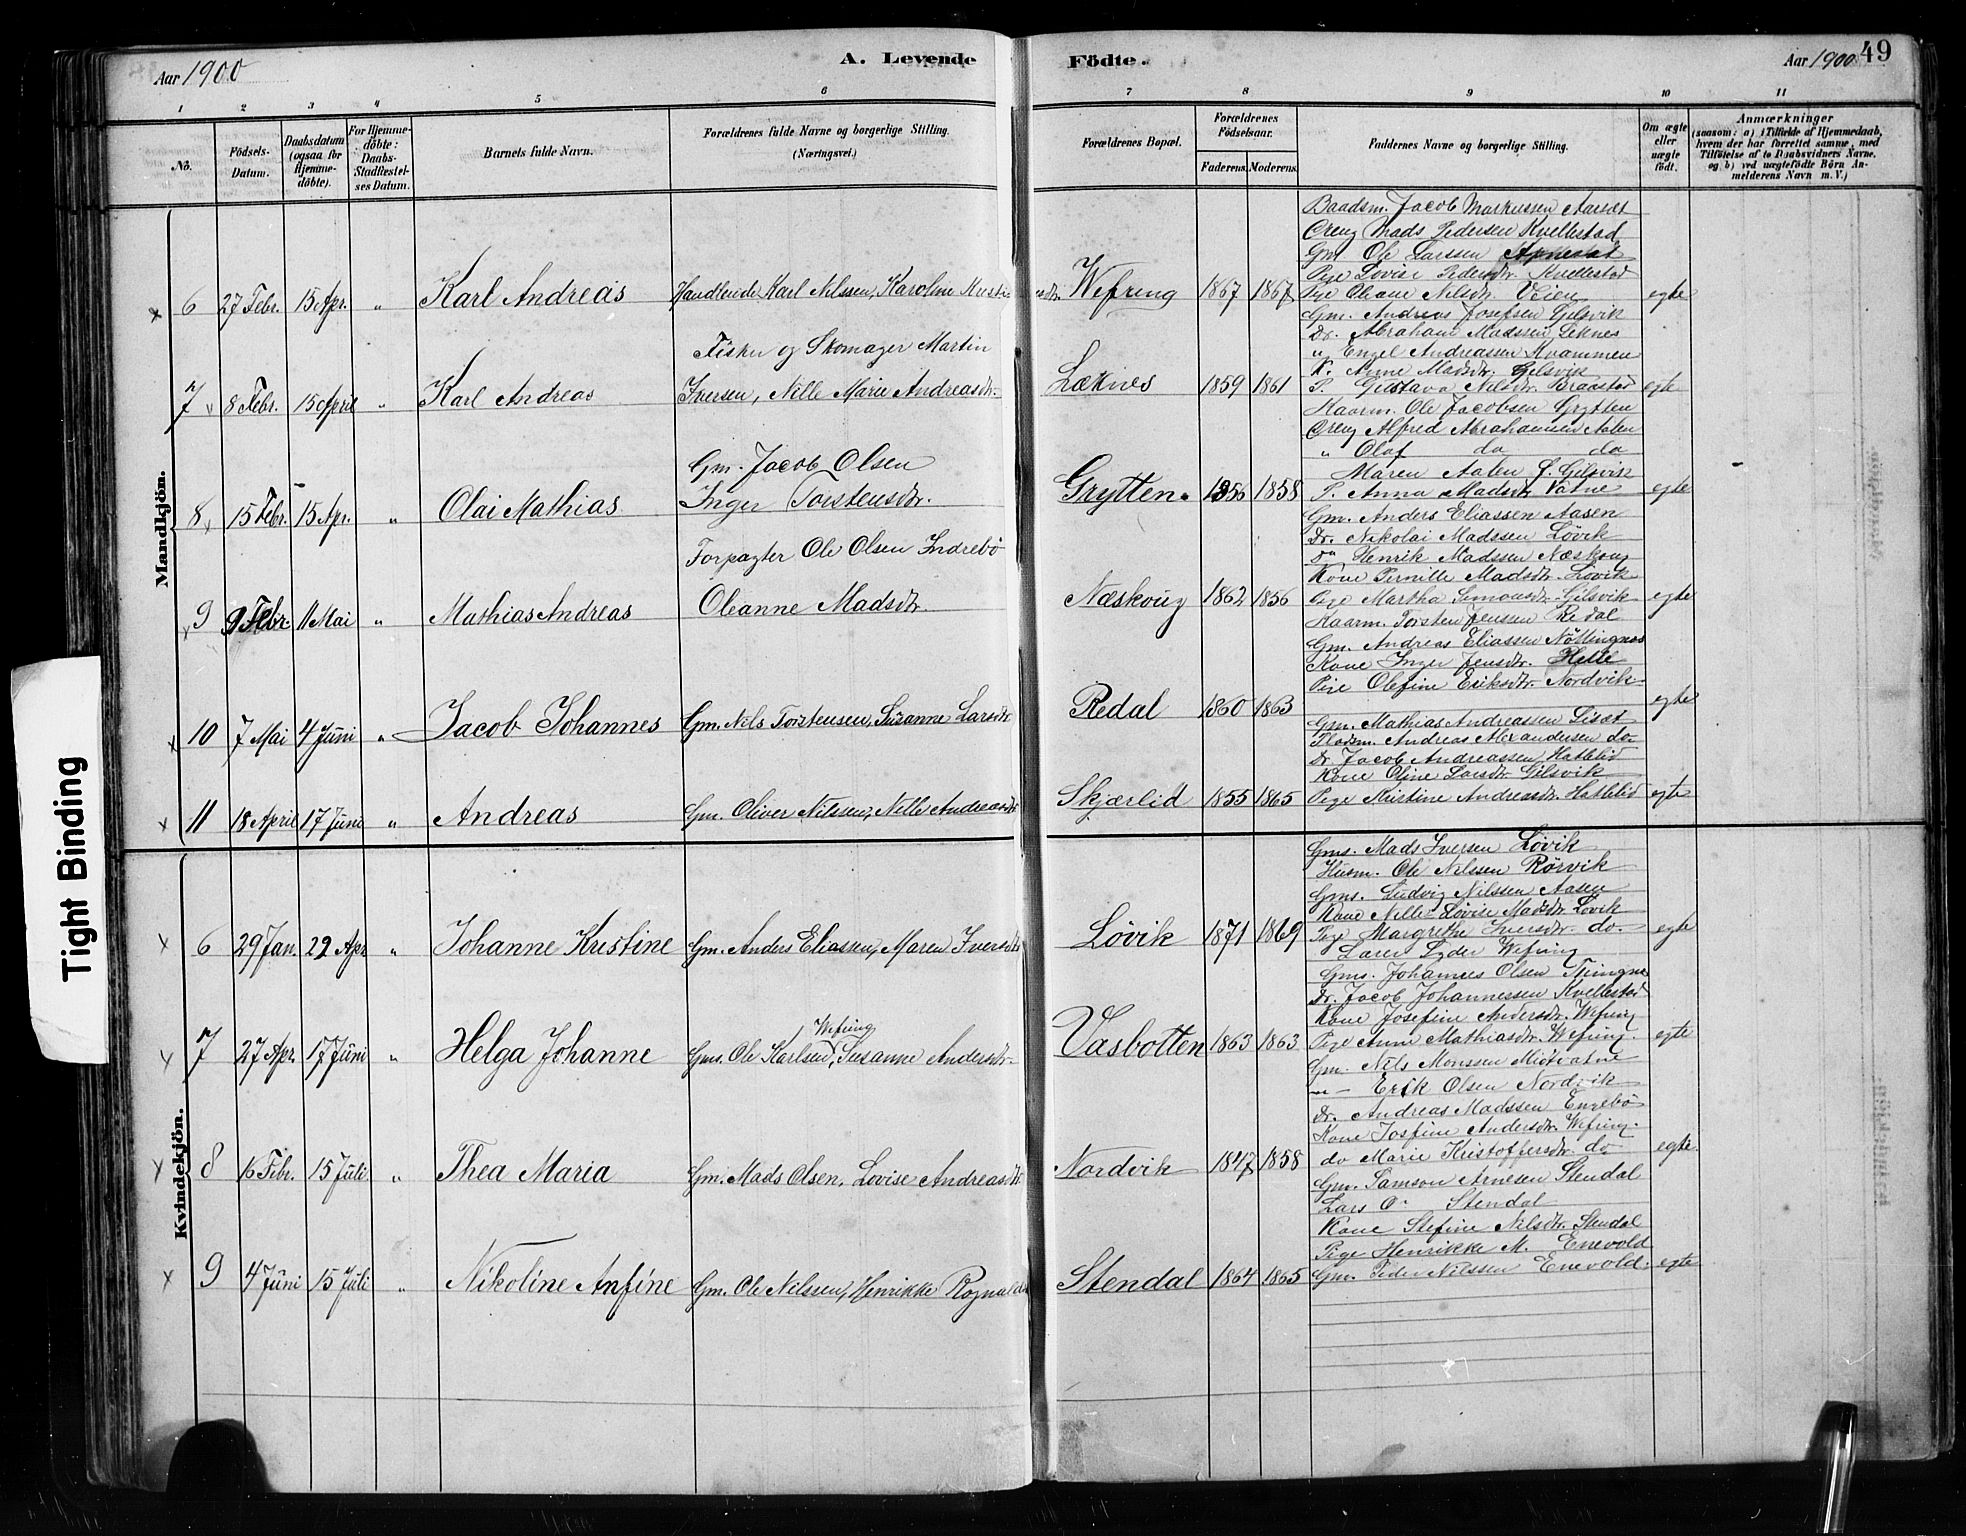 Aar 1900
A. Levende
Födte.
Aar 1900
49
1 2 3 4 5 6 7 8 9 10 11
No.
Födsels-Datum.
Daabsdatum (ogsaa for Hjemme-döbte).
For Hjemme-döbte: Daabs-Stadfæstel-ses Datum.
Barnets fulde Navn.
Forældrenes fulde Navne og borgerlige Stilling. (Næringsvei.)
Forældrenes Bopæl.
Forældrenes Födselsaar.
Faderens. Moderens.
Faddernes Navne og borgerlige Stilling.
Om ægte eller uægte födt.
Anmærkninger
(saasom: a) i Tilfælde af Hjemmedaab, hvem der har forrettet samme, med Tilföielse af to Daabsvidners Navne, og b) ved uægtefödte Börn An-melderens Navn m. V.)
Mandkjön.
Baadsm. Jacob Markussen Aarsæt
Ureng Mads Pedersen Kvellestad
Gm. Ole Larssen
Pige Lovise Pedersdr. Kvellestad
6 27 Febr. 15 Apr. " Karl Andreas Handlende Karl Nilssen, Karoline Wefring 1867 1867 Pige Oliane Nilsdr. Veien egte
Gm. Andreas Josefsen Gilsvik
Dr. Abraham Madssen Leknes
Fisker og Skomager Martin
u Engel Andreassen Kvammen
K. Anne Madsdr. Gilsvik
7 8 Febr. 15 April " Karl Andreas Iversen, Nille Marie Andreasdr. Læknes 1859 1861 P. Gustava Nilsdr. Braastad egte
Kaarm. Ole Jacobsen Grytten
Ureng Alfred Abrahamsen Aalen
" Olaf do do
Gm. Jacob Olsen
Maren Aalen f. Gilsvik
8 15 Febr. 15 Apr. " Olai Mathias Inger Torstensdr. Grytten. 1856 1858 P. Anna Madsdr. Vatne egte
Gm. Anders Eliassen Aasen
Dr. Nikolai Madssen Lövik
Forpagter Ole Olsen Indrebö
do Henrik Madssen Næskoug
Kone Pernille Madsdr. Lövik
9 9 Febr. 11 Mai " Mathias Andreas Oleanne Madsdr. Næskoug 1862 1856 Pige Martha Simonsdr. Gilsvik egte
Kaarm. Torsten Jensen Redal
Gm. Andreas Eliassen Nöttingnes
Kone Inger Jensdr. Helle
Pige Olefine Eriksdr. Nordvik
10 7 Mai 4 Juni " Jacob Johannes Gm. Nils Torstensen, Susanne Larsdr Redal 1860 1863 egte
Gm. Mathias Andreassen Lisæt
Pladsm. Andreas Alexandersen do
Dr. Jacob Andreassen Hatlelid
Kone Oline Larsdr. Gilsvik
11 18 April 17 Juni " Andreas Gm. Oliver Nilssen, Nille Andreasdr Skjærlid 1855 1865 Pige Kristine Andreasdr. Hatlelid egte
Kvindekjön.
Gms. Mads Iversen Lövik
Husm. Ole Nilssen Rörvik
Gms. Ludvig Nilssen Aasen
Kone Nille Lovise Madsdr. Lövik
6 29 Jan. 22 Apr " Johanne Kristine Gm. Anders Eliassen, Maren Iversdr Lövik 1871 1869 Pige Margrethe Iversdr. do egte
Lyder Wefring
Gms. Johannes Olsen
Dr. Jacob Johannessen Kvellestad
Kone Josefine Andersdr. Wefring
7 27 Apr. 17 Juni " Helga Johanne Gms. Ole Karlsen Wefring, Susanne Andersdr. Vasbotten 1863 1863 Pige Anne Mathiasdr. Wefring. egte
Gm. Nils Monssen Midtvatne
" — Erik Olsen Nordvik
Dr. Andreas Madssen Engebö
Kone Josfine Andersdr. Wefring.
8 16 Febr. 15 Juli " Thea Maria Gm. Mads Olsen, Lovise Andreasdr. Nordvik 1847 1858 do Marie Kristoffersdr. do egte
Gm. Samson Arnesen Stendal
Lars O. Stendal
Kone Stefine Nilsdr. Stendal
Pige Henrikke M. Enevold
9 4 Juni 15 Juli " Nikoline Anfine Gm. Ole Nilssen, Henrikke Stendal 1864 1865 Gm. Peder Nilssen Enevold. egte
Tight Binding